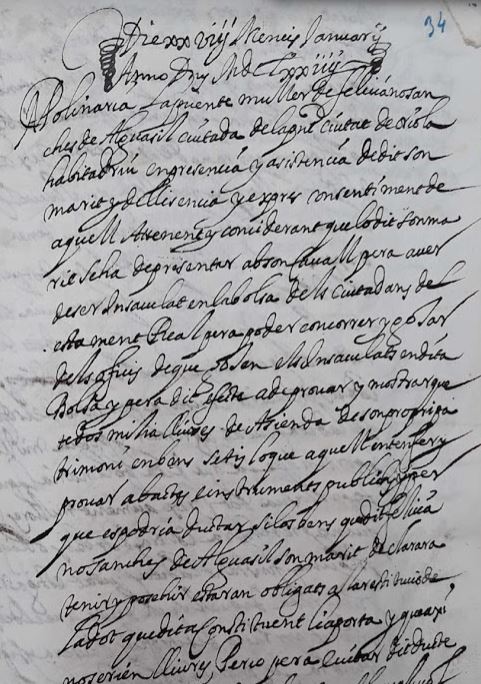 34
Die xxviiij Mencis Januarij
Anno Dny MdClxxviiij
Apolinaria Lapuente muller de feliciano san
ches de Alguasil ciutada de la pnt ciutat de oriola
habitadriu en presencia y asistencia de dit son
marit y de llisencia y expres consentiment de
aquell Attenent y conciderant que lo dit son ma
rit se ha de presentar ab son Cavall pera aver
de ser insaculat en la bolsa dels ciutadans del
estament Real pera poder concorrer y gosar
dels ofisis de que gosen els insaculats en dita
Bolsa y pera dit efecte a de provar y mostrar que
te dos milia lliures de Asienda de son propi pa
trimoni en bens setis lo que aquell enten fer y
provar ab actes e instruments publichs y per
que es podria ductar si los bens que dit felicia
no sanches de Alguasil son marit declarara
tenir y posehir estaran obligats a la restitucio de
la dot que dita Constituent li aporta y que axi
no serien lliures, Perço pera evitar dit dupte